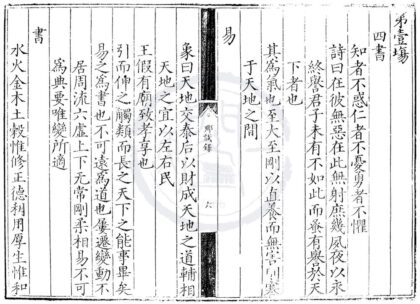 弟壹塲
四書
知者不惑仁者不憂勇者不懼
詩曰在彼無惡在此無射庶幾夙夜以永
終譽君子未有不如此而蚤有譽於天
下者也
其爲氣也至大至剛以直養而無害則塞
于天地之間
易
鄉試録
六
象曰天地交泰后以財成天地之道輔相
天地之宜以左右民
王假有廟致孝享也
引而伸之觸類而長之天下之能事畢矣
易之爲書也不可遠爲道也屢遷變動不
居周流六虛上下无常剛柔相易不可
爲典要唯變所適
書
水火金木土穀惟修正德利用厚生惟和